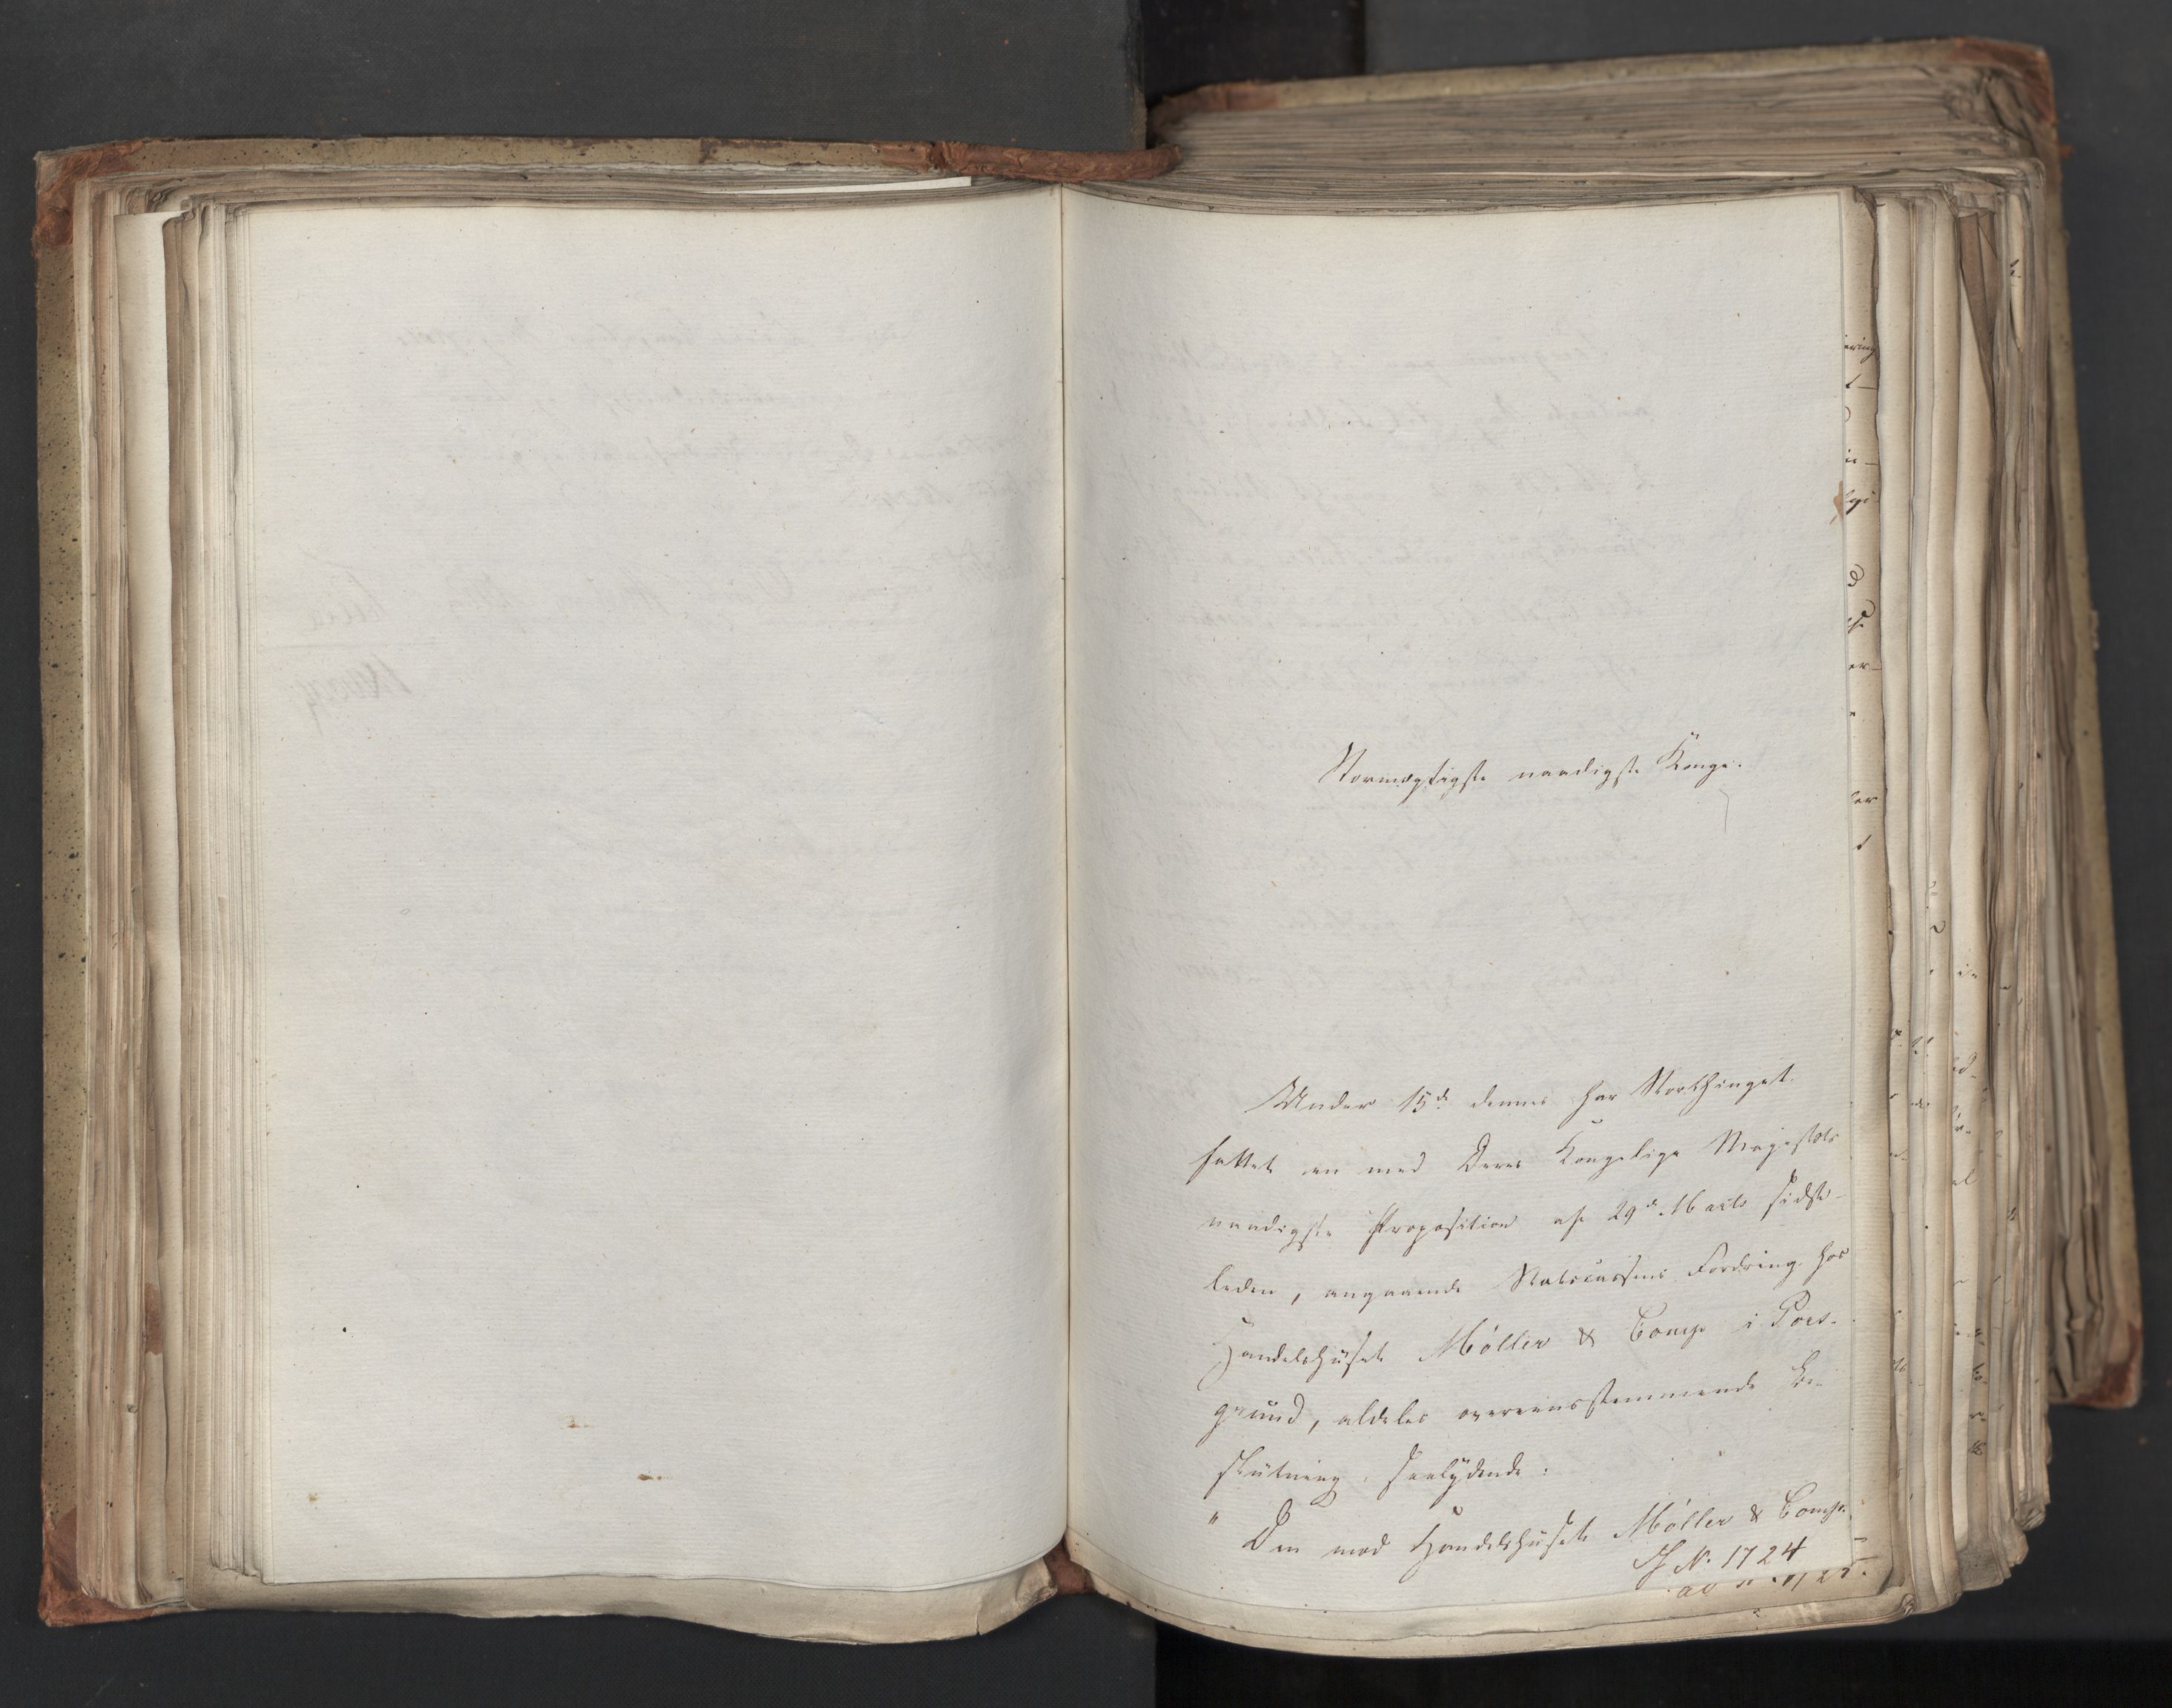 Stormægtigste naadigste Konge.
Under 15de dennes har Storthinget
fattet en med Deres Kongelige Majestæts
naadigste Proposition af 29de Marts sidst-
leden, angaaende Statscassens Fordring hos
Handelshuset Møller & Comp i Pors-
grund, aldeles overeensstemmende Be-
slutning, saalydende:
" Den mod Handelshuset Møller & Comp.
J N. 1724